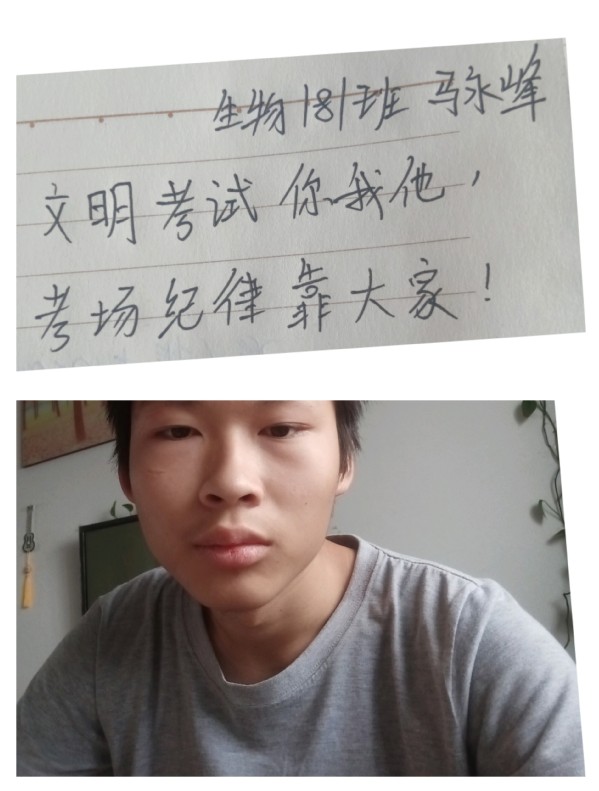 生物181班 马永峰
文明考试你我他，
考场纪律靠大家！